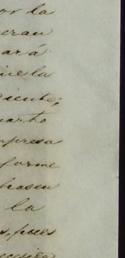 por la
eran
ará
que la
ciente;
cuarto
mpresa
forme
hasen
la
s, pues